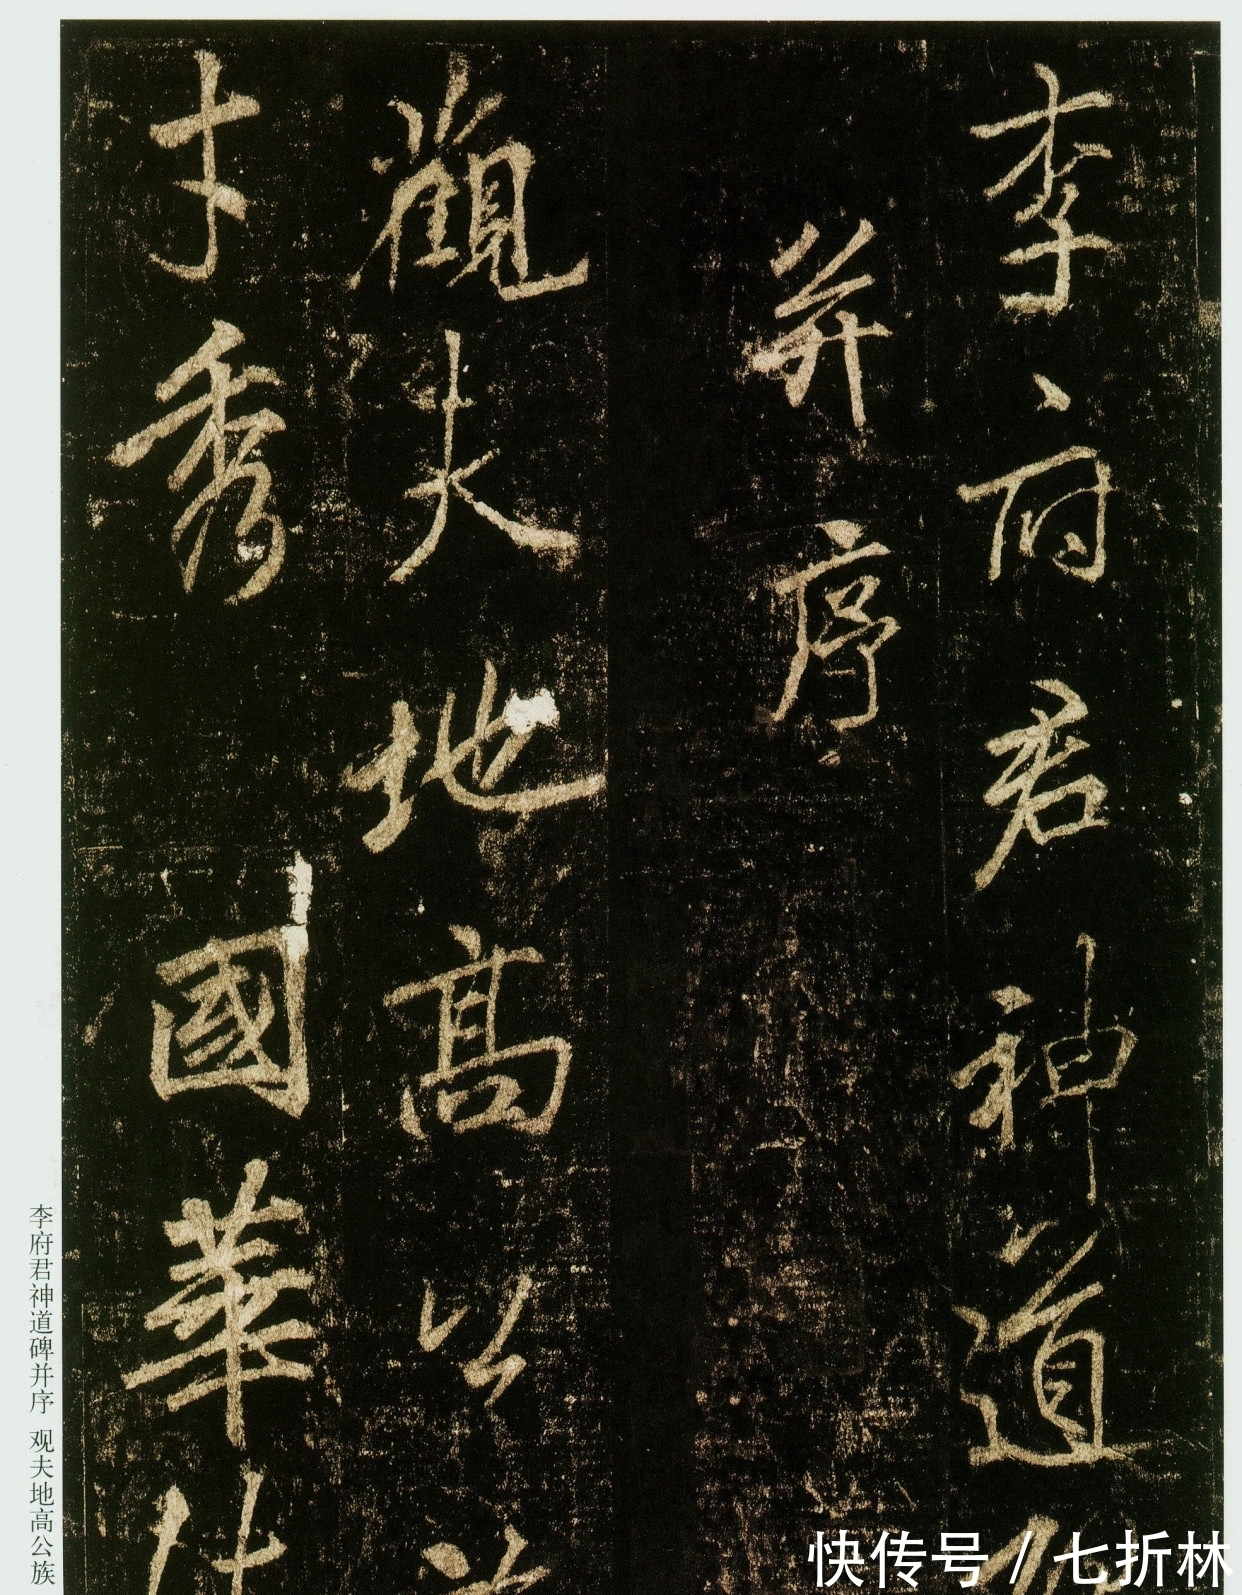 李府君神道
并序
觀夫地高公
才秀國華
李府君神道碑并序 观夫地高公族
快传号 / 七折林